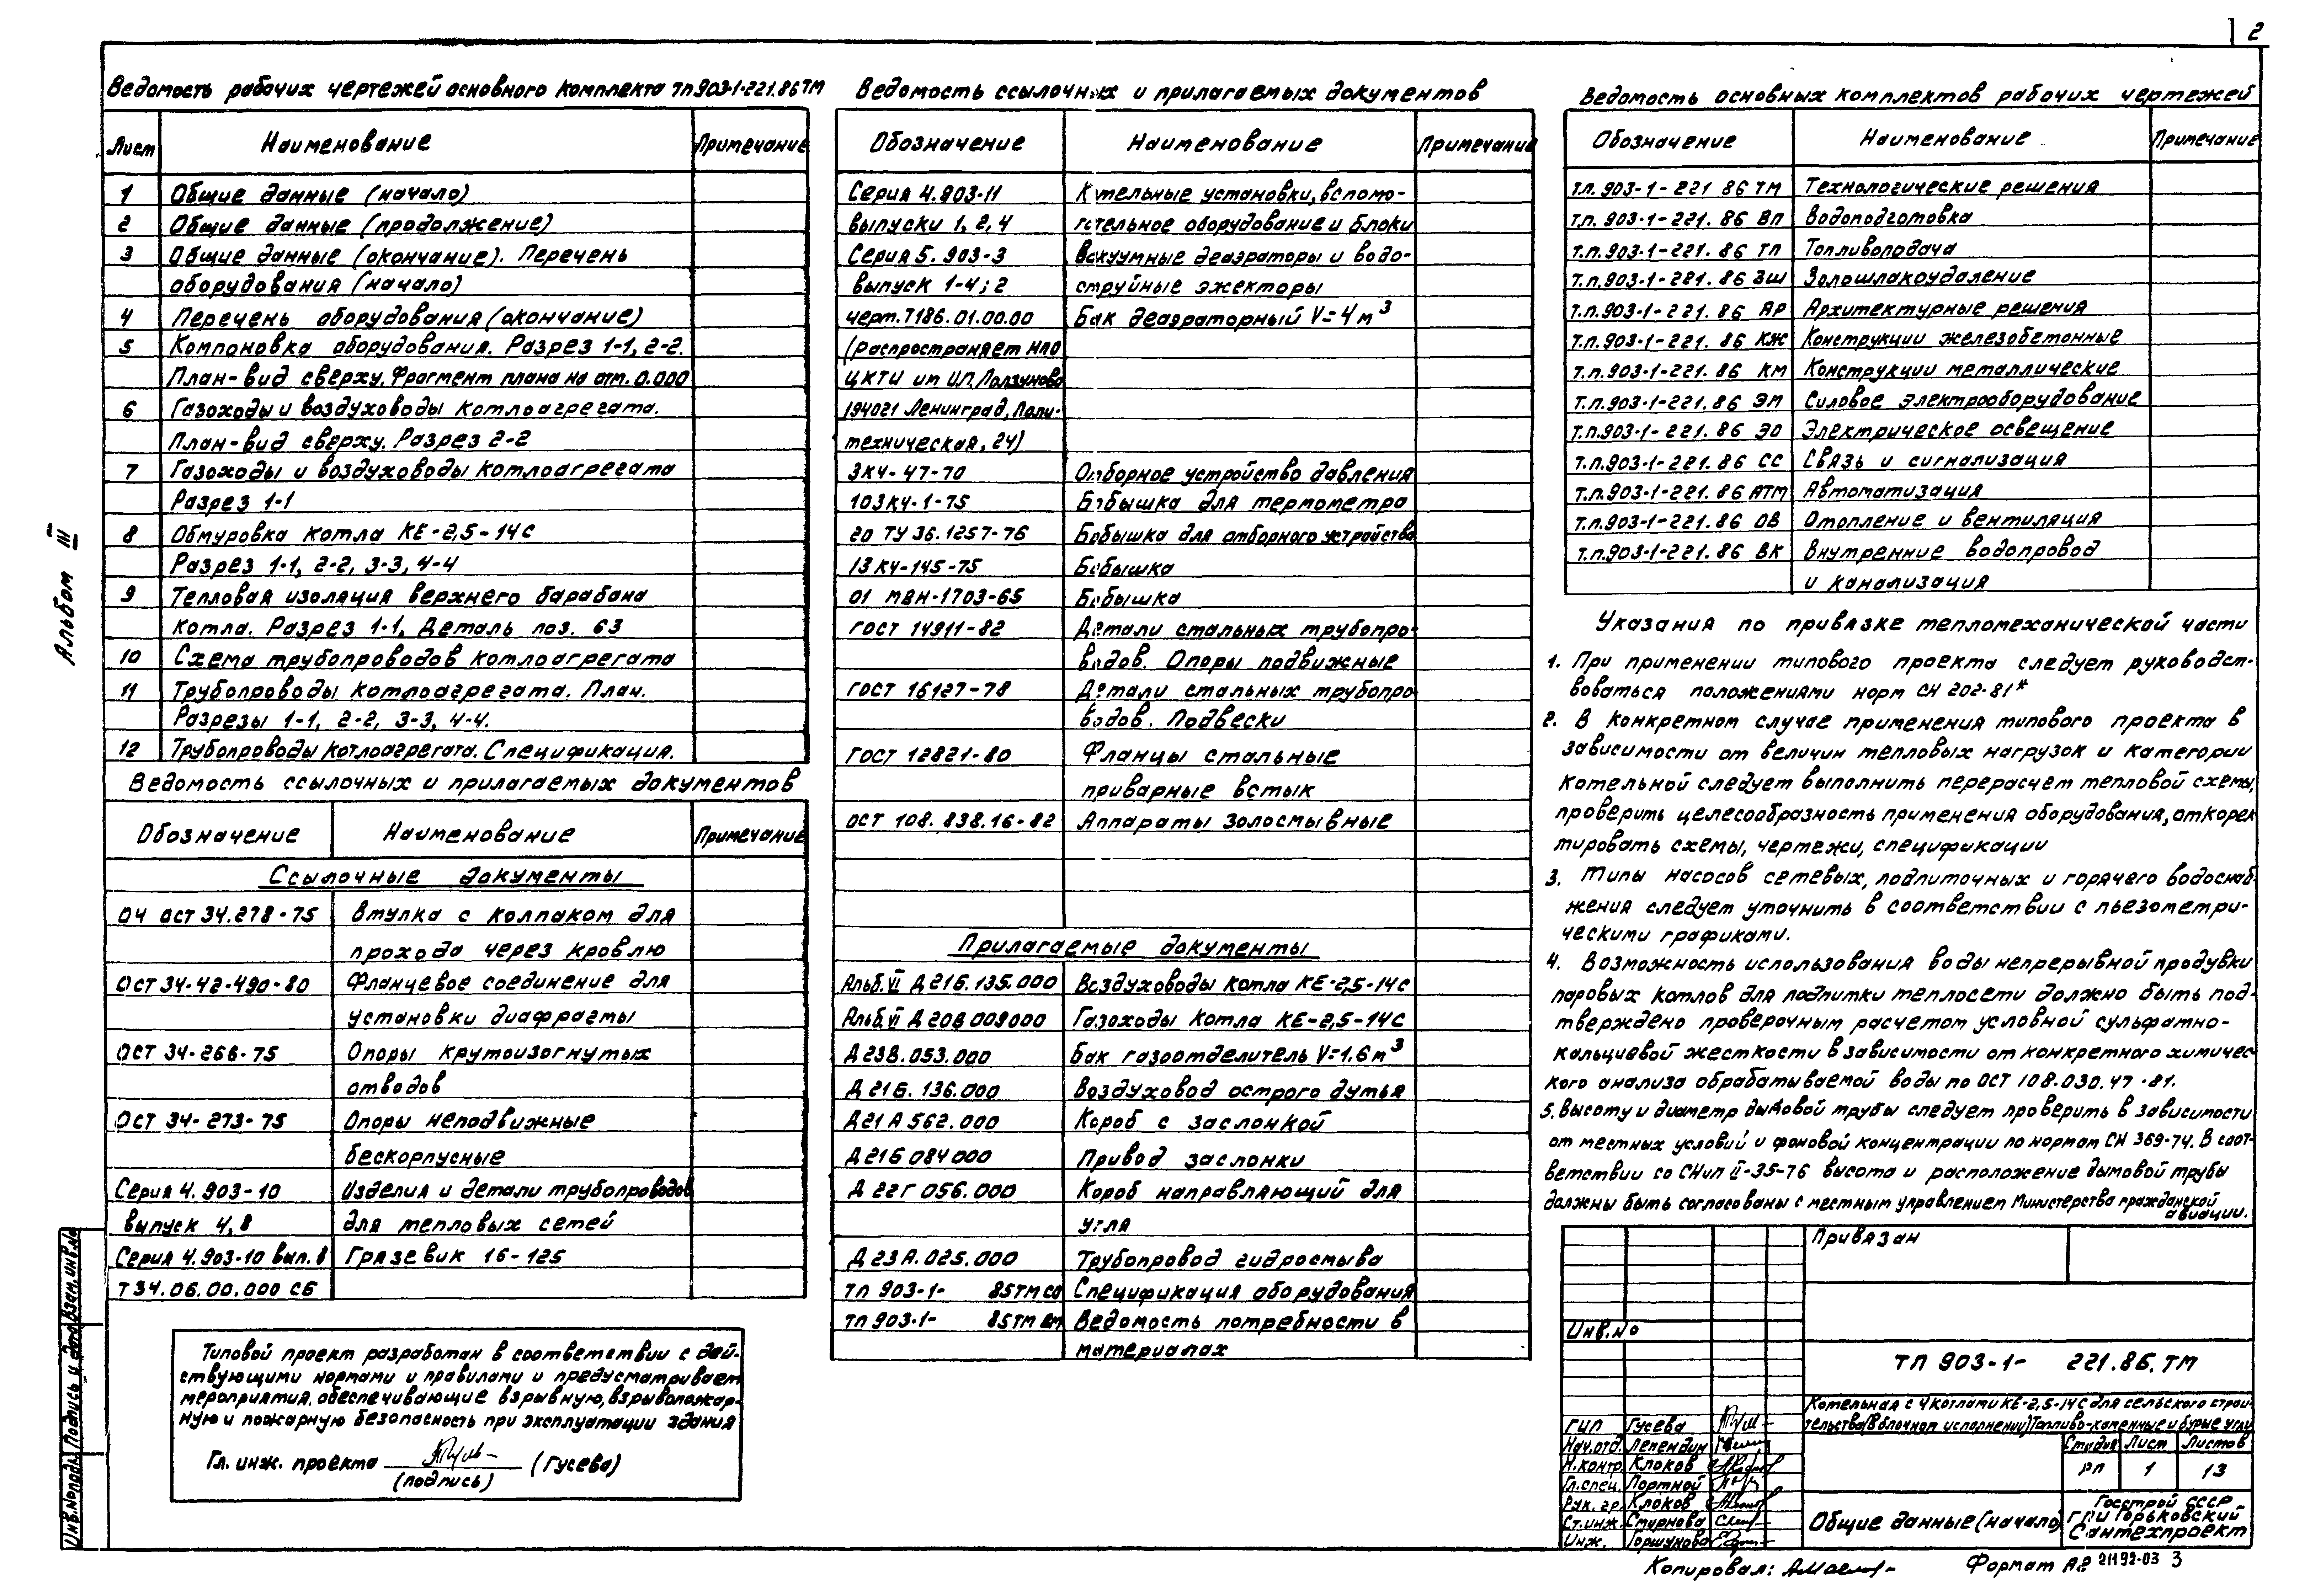 2
Ведомость рабочих чертежей основного комплекта ТП903-1-221.86ТМ
Лист Наименование Примечание
1 Общие данные (начало)
2 Общие данные (продолжение)
3 Общие данные (окончание). Перечень
оборудования (начало)
4 Перечень оборудования (окончание)
5 Компоновка оборудования. Разрез 1-1, 2-2.
План-вид сверху. Фрагмент плана на отм. 0.000
6 Газоходы и воздуховоды котлоагрегата.
План-вид сверху. Разрез 2-2
7 Газоходы и воздуховоды котлоагрегата
Разрез 1-1
8 Обмуровка котла КЕ-2,5-14С
Разрез 1-1, 2-2, 3-3, 4-4
9 Тепловая изоляция верхнего барабана
котла. Разрез 1-1, Деталь поз. 63
10 Схема трубопроводов котлоагрегата
11 Трубопроводы котлоагрегата. План.
Разрезы 1-1, 2-2, 3-3, 4-4.
12 Трубопроводы котлоагрегата. Спецификация.
Ведомость ссылочных и прилагаемых документов
Обозначение Наименование Примечание
Ссылочные документы
04 ОСТ 34.278-75 Втулка с колпаком для
прохода через кровлю
ОСТ 34-42-490-80 Фланцевое соединение для
установки диафрагмы
ОСТ 34-266-75 Опоры крутоизогнутых
отводов
ОСТ 34-273-75 Опоры неподвижные
бескорпусные
Серия 4.903-10 Изделия и детали трубопроводов
выпуск 4,8 для тепловых сетей
Серия 4.903-10 вып. 8 Грязевик 16-125
Т34.06.00.000 СБ
Типовой проект разработан в соответствии с дей-
ствующими нормами и правилами и предусматривает
мероприятия, обеспечивающие взрывную, взрывопожар-
ную и пожарную безопасность при эксплуатации здания
Гл. инж. проекта (Гусева)
(подпись)
Ведомость ссылочных и прилагаемых документов
Обозначение Наименование Примечание
Серия 4.903-11 Котельные установки, вспомо-
выпуски 1, 2, 4 гательное оборудование и блоки
Серия 5.903-3 Вакуумные деаэраторы и водо-
выпуск 1-4; 2 струйные эжекторы
черт. Т186.01.00.00 Бак деаэраторный V=4м³
(распространяет НПО
ЦКТИ им И.П. Ползунова
194021 Ленинград, Поли-
техническая, 24)
ЗК4-47-70 Отборное устройство давления
103К4-1-75 Бобышка для термометра
20 ТУ 36.1257-76 Бобышка для отборного устройства
13К4-145-75 Бобышка
01 МВН-1703-65 Бобышка
ГОСТ 14911-82 Детали стальных трубопро-
водов. Опоры подвижные
ГОСТ 16127-78 Детали стальных трубопро
водов. Подвески
ГОСТ 12821-80 Фланцы стальные
приварные встык
ОСТ 108.838.16-82 Аппараты золосмывные
Прилагаемые документы
Альб. VI Д21Б.135.000 Воздуховоды котла КЕ-2,5-14С
Альб. VI Д20В 009000 Газоходы котла КЕ-2,5-14С
Д23В.053.000 Бак газоотделитель V=1.6м³
Д21Б.136.000 Воздуховод острого дутья
Д21А 562.000 Короб с заслонкой
Д21Б 084000 Привод заслонки
Д 22Г 056.000 Короб направляющий для
угля
Д23А.025.000 Трубопровод гидросмыва
ТП 903-1- 85ТМ СО Спецификация оборудования
ТП 903-1- 85ТМ ВМ Ведомость потребности в
материалах
Ведомость основных комплектов рабочих чертежей
Обозначение Наименование Примечание
Т.П. 903-1-221 86 ТМ Технологические решения
Т.П. 903-1-221. 86 ВП Водоподготовка
Т.П. 903-1-221. 86 ТП Топливоподача
Т.П. 903-1-221. 86 ЗШ Золошлакоудаление
Т.П. 903-1-221. 86 АР Архитектурные решения
Т.П. 903-1-221. 86 КЖ Конструкции железобетонные
Т.П. 903-1-221. 86 КМ Конструкции металлические
Т.П. 903-1-221. 86 ЭМ Силовое электрооборудование
Т.П. 903-1-221. 86 ЭО Электрическое освещение
Т.П. 903-1-221. 86 СС Связь и сигнализация
Т.П. 903-1-221. 86 АТМ Автоматизация
Т.П. 903-1-221. 86 ОВ Отопление и вентиляция
Т.П. 903-1-221. 86 ВК Внутренние водопровод
и канализация
Указания по привязке тепломеханической части
1. При применении типового проекта следует руководст-
воваться положениями норм СН 202-81*
2. В конкретном случае применения типового проекта в
зависимости от величин тепловых нагрузок и категории
котельной следует выполнить перерасчет тепловой схемы,
проверить целесообразность применения оборудования, откорек
тировать схемы, чертежи, спецификации
3. Типы насосов сетевых, подпиточных и горячего водоснаб-
жения следует уточнить в соответствии с пьезометри-
ческими графиками.
4. Возможность использования воды непрерывной продувки
паровых котлов для подпитки теплосети должно быть под-
тверждено проверочным расчетом условной сульфатно-
кальциевой жесткости в зависимости от конкретного химичес
кого анализа обрабатываемой воды по ОСТ 108.030.47-81.
5. Высоту и диаметр дымовой трубы следует проверить в зависимости
от местных условий и фоновой концентрации по нормам СН 369-74. В соот-
ветствии со СНиП II-35-76 высота и расположение дымовой трубы
должны быть согласованы с местным управлением Министерства гражданской
авиации.
Привязан
Инв. №
ТП 903-1- 221.86.ТМ
Котельная с 4 котлами КЕ-2,5-14С для сельского строи-
тельства (В блочном исполнении) Топливо-каменные и бурые угли
ГИП Гусева
Нач.отд. Лепендин
Н.контр. Клоков
Гл.спец. Портной
Рук. гр. Клоков
Ст.инж. Смирнова
Инж. Горшунова
Стадия Лист Листов
РП 1 13
Общие данные (начало)
Госстрой СССР
ГПИ Горьковский
Сантехпроект
Копировал:
Формат А2 21192-03 3
Альбом III
Инв.№ подл. Подпись и дата Взам. инв.№